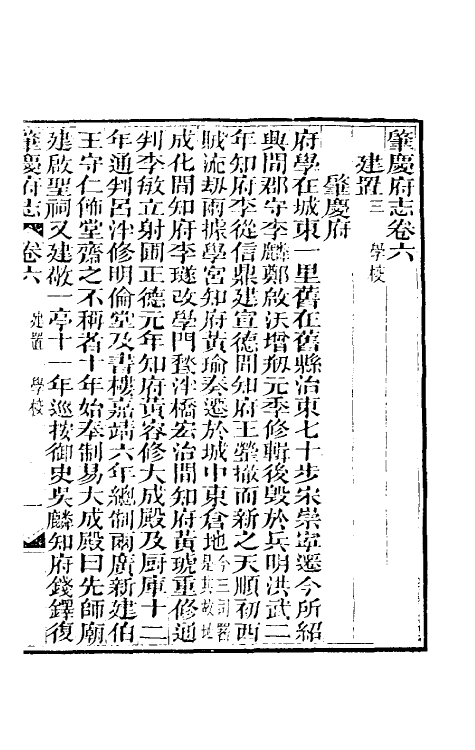 肇慶府志卷六
建置三 學校
肇慶府
府學在城東一里舊在舊縣治東七十步宋崇寧遷今所紹
興間郡守李麟鄭啟沃增剏元季修輯後毀於兵明洪武二
年知府李從信鼎建宣德間知府王瑩撤而新之天順初西
賊流劫雨據學宮知府黃瑜奏遷於城中東倉地今三司署是其故地
成化間知府李璲改學門甃泮橋宏治間知府黃琥重修通
判李敏立射圃正德元年知府黃容修大成殿及厨庫十二
年通判呂泮修明倫堂及書樓嘉靖六年總制兩廣新建伯
王守仁飾堂齋之不稱者十年始奉制易大成殿曰先師廟
建啟聖祠又建敬一亭十一年巡按御史吳麟知府錢鐸復
肇慶府志 卷六 建置 學校 一